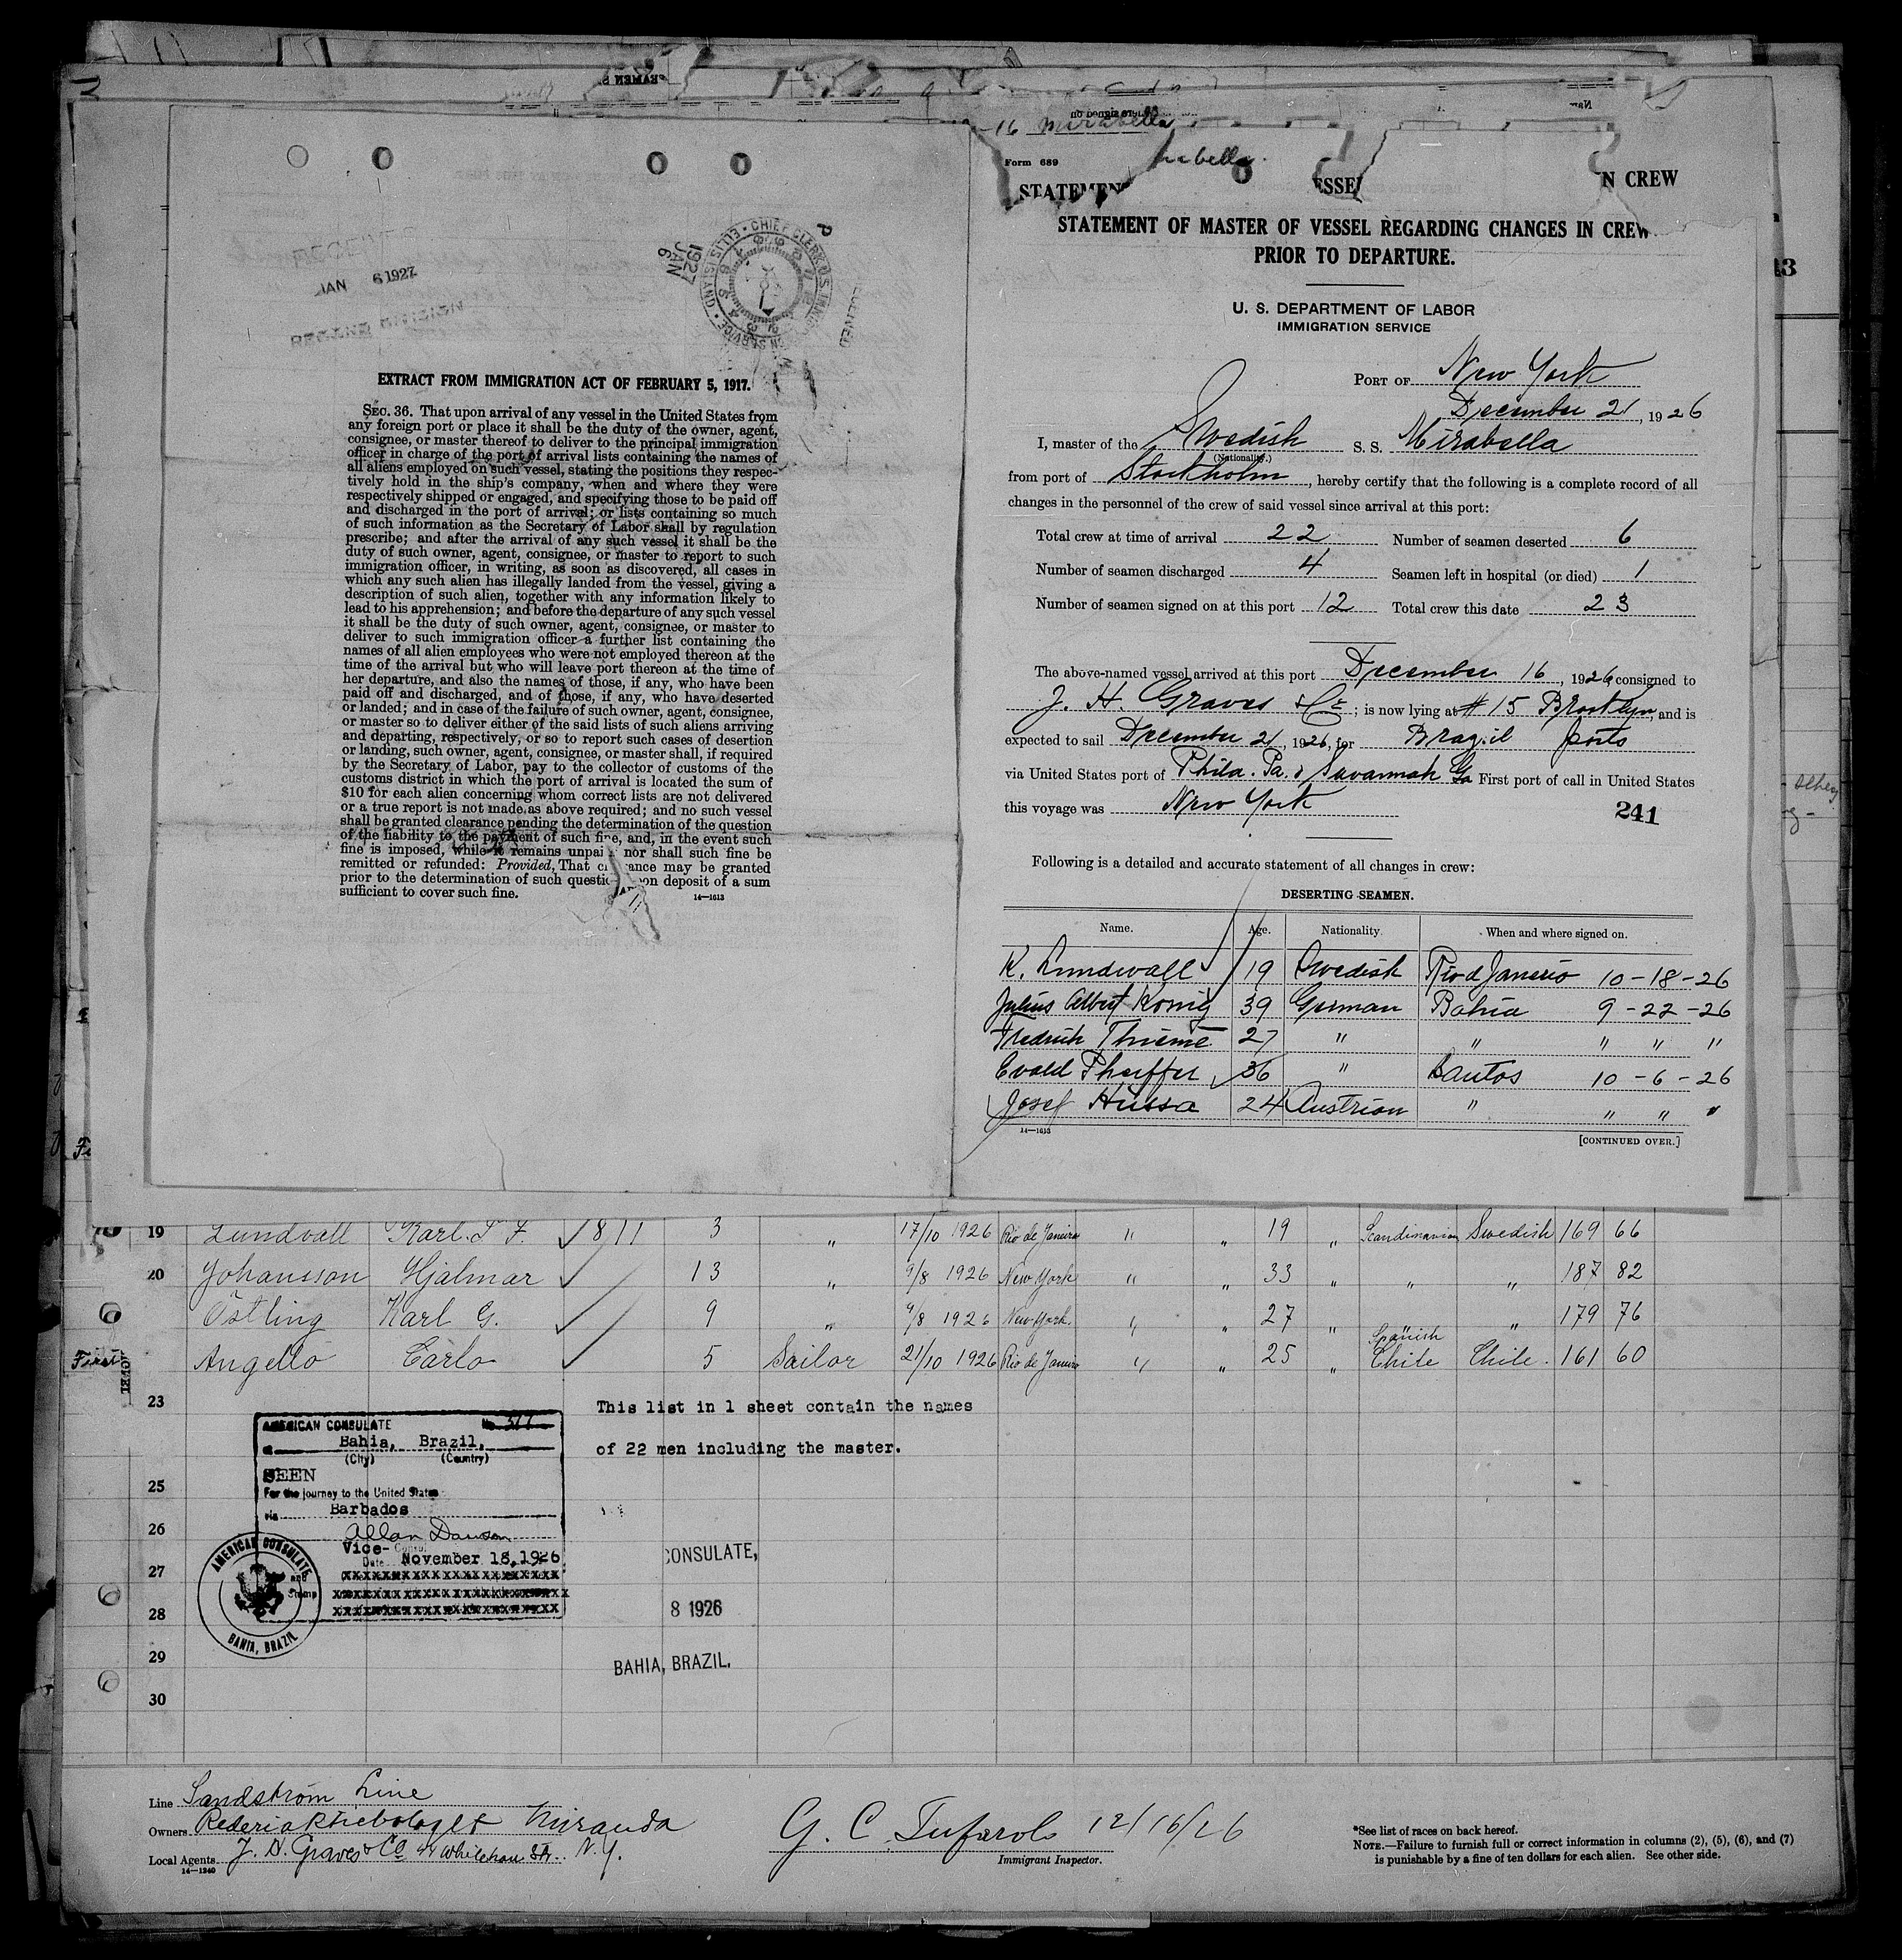 JAN 6 1927
RECORD DIVISION
CHIEF CLERK, U.S. IMMIGRATION SERVICE • ELLIS ISLAND
1927 JAN 6
RECEIVED
EXTRACT FROM IMMIGRATION ACT OF FEBRUARY 5, 1917.
SEC. 36. That upon arrival of any vessel in the United States from
any foreign port or place it shall be the duty of the owner, agent,
consignee, or master thereof to deliver to the principal immigration
officer in charge of the port of arrival lists containing the names of
all aliens employed on such vessel, stating the positions they respec-
tively hold in the ship's company, when and where they were
respectively shipped or engaged, and specifying those to be paid off
and discharged in the port of arrival; or lists containing so much
of such information as the Secretary of Labor shall by regulation
prescribe; and after the arrival of any such vessel it shall be the
duty of such owner, agent, consignee, or master to report to such
immigration officer, in writing, as soon as discovered, all cases in
which any such alien has illegally landed from the vessel, giving a
description of such alien, together with any information likely to
lead to his apprehension; and before the departure of any such vessel
it shall be the duty of such owner, agent, consignee, or master to
deliver to such immigration officer a further list containing the
names of all alien employees who were not employed thereon at the
time of the arrival but who will leave port thereon at the time of
her departure, and also the names of those, if any, who have been
paid off and discharged, and of those, if any, who have deserted
or landed; and in case of the failure of such owner, agent, consignee,
or master so to deliver either of the said lists of such aliens arriving
and departing, respectively, or so to report such cases of desertion
or landing, such owner, agent, consignee, or master shall, if required
by the Secretary of Labor, pay to the collector of customs of the
customs district in which the port of arrival is located the sum of
$10 for each alien concerning whom correct lists are not delivered
or a true report is not made as above required; and no such vessel
shall be granted clearance pending the determination of the question
of the liability to the payment of such fine, and, in the event such
fine is imposed, while it remains unpai nor shall such fine be
remitted or refunded: Provided, That c ance may be granted
prior to the determination of such questi on deposit of a sum
sufficient to cover such fine.
14—1613
16 Mirabella
Form 689 abella.
STATEMEN ESSEL N CREW
STATEMENT OF MASTER OF VESSEL REGARDING CHANGES IN CREW
PRIOR TO DEPARTURE.
U. S. DEPARTMENT OF LABOR
IMMIGRATION SERVICE
PORT OF New York
December 21, 1926
I, master of the Swedish S. S. Mirabella
(Nationality.)
from port of Stockholm, hereby certify that the following is a complete record of all
changes in the personnel of the crew of said vessel since arrival at this port:
Total crew at time of arrival 22 Number of seamen deserted 6
Number of seamen discharged 4 Seamen left in hospital (or died) 1
Number of seamen signed on at this port 12 Total crew this date 23
The above-named vessel arrived at this port December 16, 1926, consigned to
J. H. Graves & Co; is now lying at # 15 Brooklyn, and is
expected to sail December 21, 1926, for Brazil ports
via United States port of Phila. Pa. & Savannah Ga First port of call in United States
this voyage was New York
241
Following is a detailed and accurate statement of all changes in crew:
DESERTING SEAMEN.
Name. Age. Nationality. When and where signed on.
K. Lundwall 19 Swedish Rio d Janerio 10-18-26
Julius Albert König 39 German Bahia 9-22-26
Fredrich Thieme 27 " " " " "
Evald Pheiffer 36 " Santos 10-6-26
Josef Hussa 24 Austrian " " " "
14—1613
[CONTINUED OVER.]
19 Lundvall Karl. 1811 3 " 17/10 1926 Rio de Janeiro " " 19 " Scandinavian Swedish 169 66
20 Johansson Hjalmar 13 " 9/8 1926 New York " " 33 " " " 187 82
Östling Karl G. 9 " 9/8 1926 New York. " " 27 " " " 179 76
Angello Carlo 5 Sailor 21/10 1926 Rio de Janeiro " " 25 " Spanish Chile Chile. 161 60
23 This list in 1 sheet contain the names
of 22 men including the master.
AMERICAN CONSULATE No. 317
Bahia, Brazil.
(City) (Country)
SEEN
For the journey to the United States
via Barbados
Allan Dawson
Vice-Consul
Date November 18, 1926
AMERICAN CONSULATE
BAHIA, BRAZIL
CONSULATE,
8 1926
BAHIA, BRAZIL.
25
26
27
28
29
30
Line Sandström Line
Owners Rederiaktiebolaget Miranda
Local Agents J. H. Graves & Co 44 Whitehall St. N. Y.
14—1240
G. C. Tufarolo 12/16/26
Immigrant Inspector.
*See list of races on back hereof.
NOTE.—Failure to furnish full or correct information in columns (2), (5), (6), and (7)
is punishable by a fine of ten dollars for each alien. See other side.